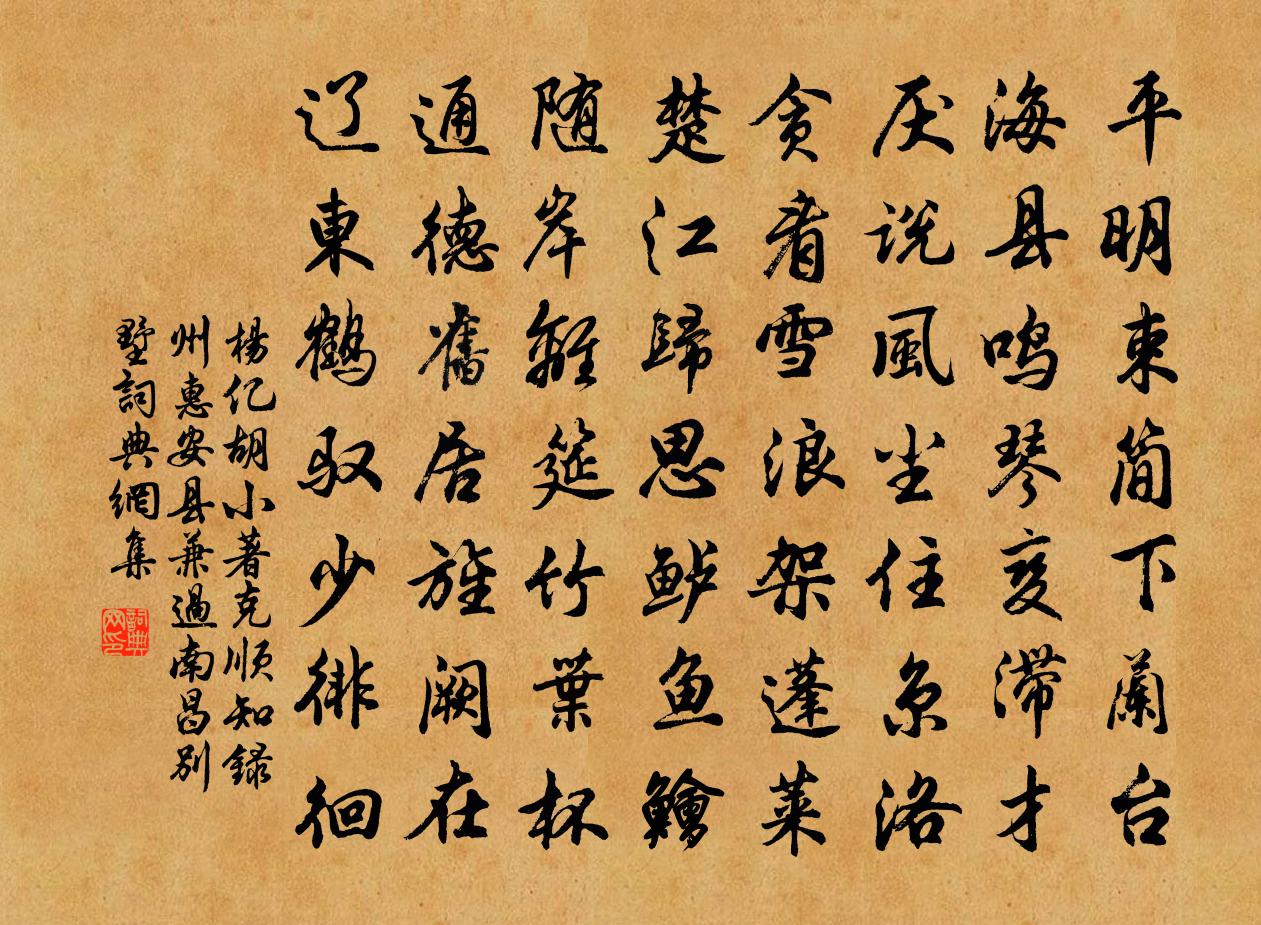 平明束简下蘭台
海县鸣琴变滞才
厌说風尘住京洛
贪看雪浪架蓬莱
楚江歸思鲈鱼鱠
随岸離筵竹葉杯
通德舊居旌阙在
辽東鹤驭少徘徊
楊亿胡小著克順知録
州惠安县兼過南昌别
墅詞典網集
詞典网印